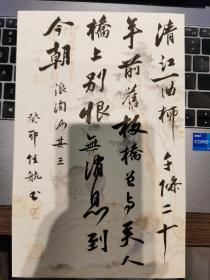 清江一曲柳千條二十
年前舊板橋曾與美人
橋上別恨無消息到
今朝
浪淘沙其三
癸卯
intel
CORE